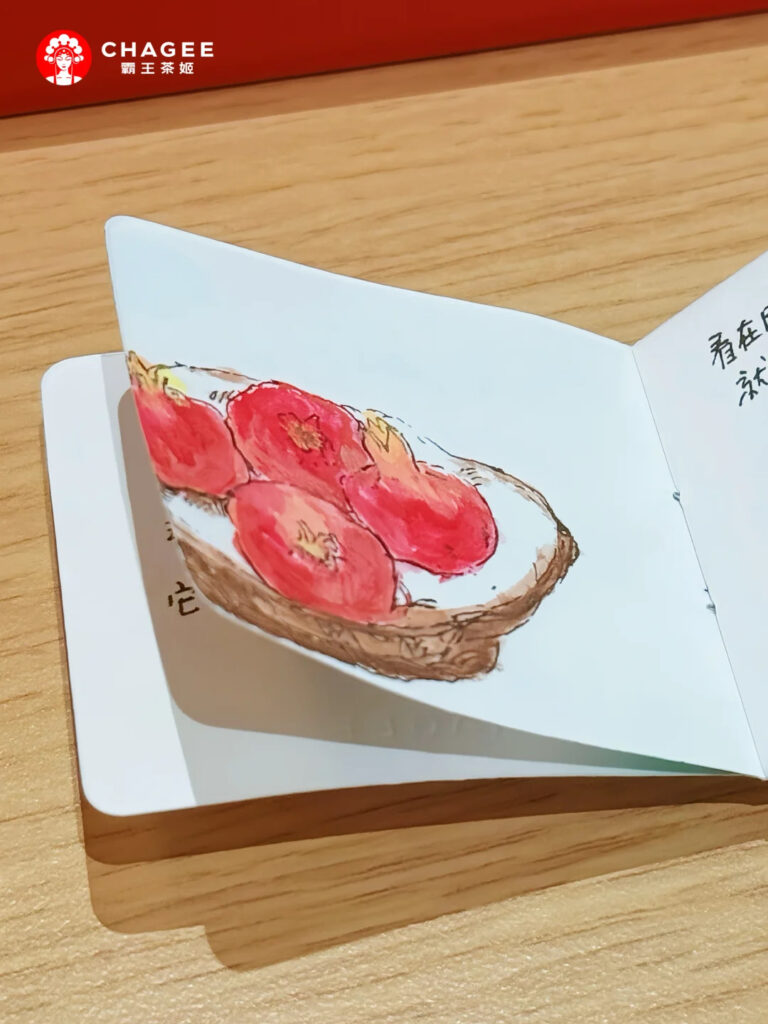 CHAGEE
霸王茶姬
看在
就
它